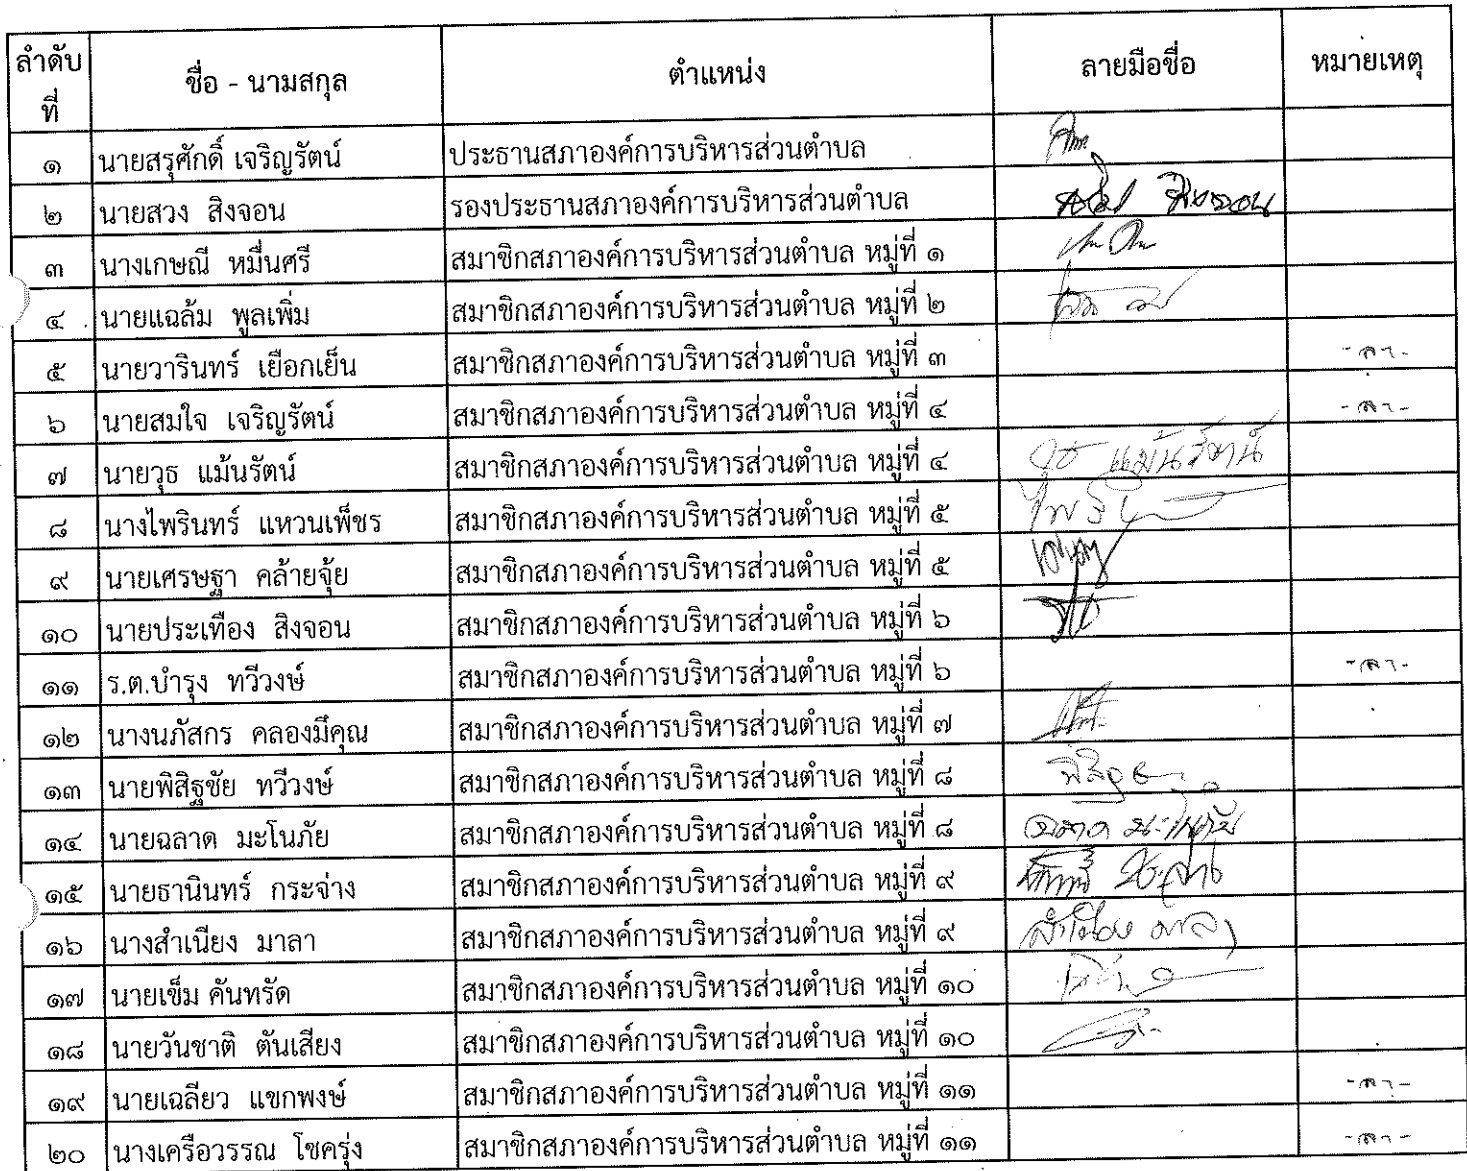 ลำดับที่ ชื่อ - นามสกุล ตำแหน่ง ลายมือชื่อ หมายเหตุ
๑ นายสรุศักดิ์ เจริญรัตน์ ประธานสภาองค์การบริหารส่วนตำบล
๒ นายสวง สิงจอน รองประธานสภาองค์การบริหารส่วนตำบล
๓ นางเกษณี หมื่นศรี สมาชิกสภาองค์การบริหารส่วนตำบล หมู่ที่ ๑
๔ นายแฉล้ม พูลเพิ่ม สมาชิกสภาองค์การบริหารส่วนตำบล หมู่ที่ ๒
๕ นายวารินทร์ เยือกเย็น สมาชิกสภาองค์การบริหารส่วนตำบล หมู่ที่ ๓ -ลา-
๖ นายสมใจ เจริญรัตน์ สมาชิกสภาองค์การบริหารส่วนตำบล หมู่ที่ ๔ -ลา-
๗ นายวุธ แม้นรัตน์ สมาชิกสภาองค์การบริหารส่วนตำบล หมู่ที่ ๔ วุธ แม้นรัตน์
๘ นางไพรินทร์ แหวนเพ็ชร สมาชิกสภาองค์การบริหารส่วนตำบล หมู่ที่ ๕
๙ นายเศรษฐา คล้ายจุ้ย สมาชิกสภาองค์การบริหารส่วนตำบล หมู่ที่ ๕
๑๐ นายประเทือง สิงจอน สมาชิกสภาองค์การบริหารส่วนตำบล หมู่ที่ ๖
๑๑ ร.ต.บำรุง ทวีวงษ์ สมาชิกสภาองค์การบริหารส่วนตำบล หมู่ที่ ๖ -ลา-
๑๒ นางนภัสกร คลองมีคุณ สมาชิกสภาองค์การบริหารส่วนตำบล หมู่ที่ ๗
๑๓ นายพิสิฐชัย ทวีวงษ์ สมาชิกสภาองค์การบริหารส่วนตำบล หมู่ที่ ๘
๑๔ นายฉลาด มะโนภัย สมาชิกสภาองค์การบริหารส่วนตำบล หมู่ที่ ๘ ฉลาด มะโนภัย
๑๕ นายธานินทร์ กระจ่าง สมาชิกสภาองค์การบริหารส่วนตำบล หมู่ที่ ๙
๑๖ นางสำเนียง มาลา สมาชิกสภาองค์การบริหารส่วนตำบล หมู่ที่ ๙ สำเนียง มาลา
๑๗ นายเข็ม คันทรัด สมาชิกสภาองค์การบริหารส่วนตำบล หมู่ที่ ๑๐
๑๘ นายวันชาติ ตันเสียง สมาชิกสภาองค์การบริหารส่วนตำบล หมู่ที่ ๑๐
๑๙ นายเฉลียว แขกพงษ์ สมาชิกสภาองค์การบริหารส่วนตำบล หมู่ที่ ๑๑ -ลา-
๒๐ นางเครือวรรณ โชครุ่ง สมาชิกสภาองค์การบริหารส่วนตำบล หมู่ที่ ๑๑ -ลา-